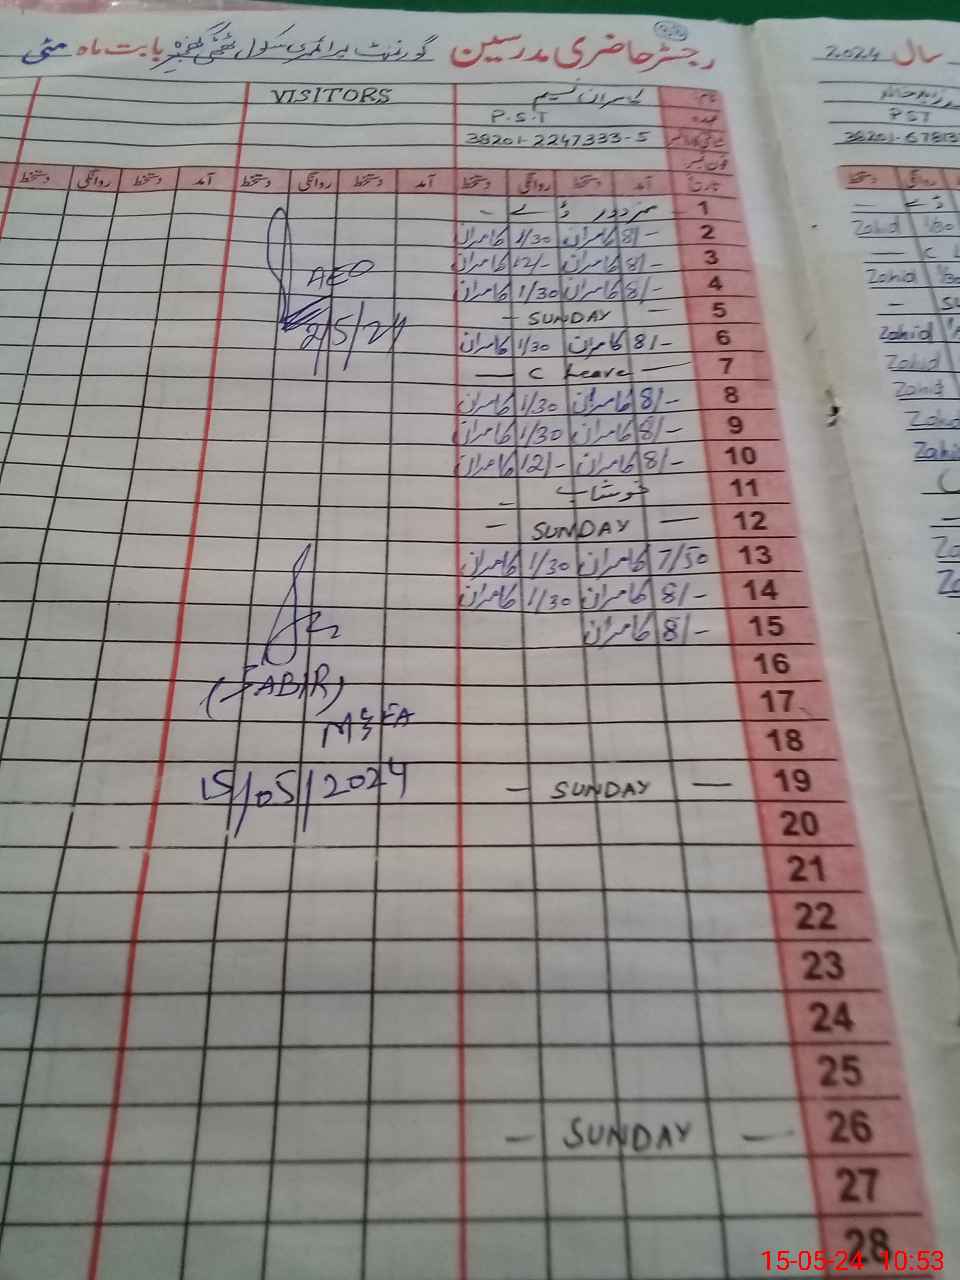 رجسٹر حاضری مدرسین گورنمنٹ پرائمری سکول بابت ماہ مئی
سال 2024
نام کامران نسیم VISITORS
عہدہ P.S.T
PST
38201-2247333-5
38201-67813
تاریخ آمد دستخط روانگی دستخط آمد دستخط روانگی دستخط آمد دستخط روانگی دستخط
1 مزدور ڈے -
2 8/- کامران 1/30 کامران
Zahid 1/30
3 8/- کامران 12/- کامران
— C L
4 8/- کامران 1/30 کامران
Zahid 1/30
AEO
5 — SUNDAY -
- SU
2/5/24
6 8/- کامران 1/30 کامران
Zahid
7 — C Leave —
Zahid
8 8/- کامران 1/30 کامران
Zahid
9 8/- کامران 1/30 کامران
Zahid
10 8/- کامران 12/- کامران
Zahid
11 خوشاب -
12 — SUNDAY —
13 7/50 کامران 1/30 کامران
14 8/- کامران 1/30 کامران
15 8/- کامران
16
(JABIR)
17
M&EA
18
19 — SUNDAY -
15/05/2024
20
21
22
23
24
25
26 — SUNDAY -
27
28
15-05-24 10:53